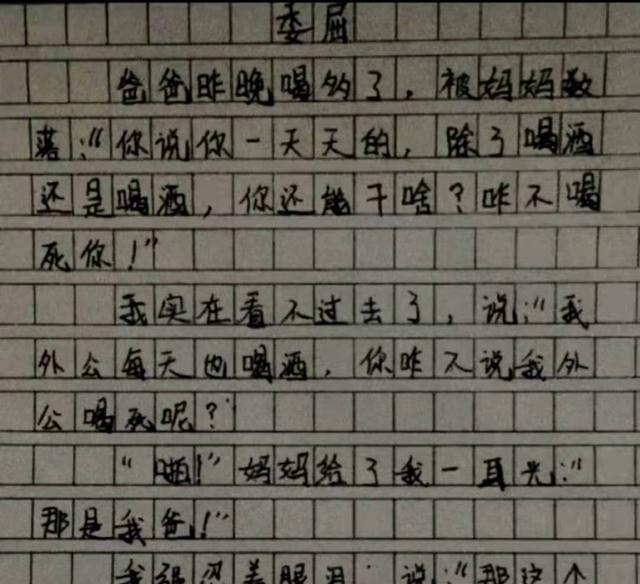 委屈
爸爸昨晚喝多了，被妈妈数
落:“你说你一天天的，除了喝酒
还是喝酒，你还能干啥？咋不喝
死你！”
我实在看不过去了，说:“我
外公每天也喝酒，你咋不说我外
公喝死呢？
“啪！”妈妈给了我一耳光:“
那是我爸！”
我强忍着眼泪 说:“那这个